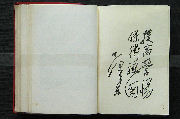 提高警惕
保衛祖國
毛澤東